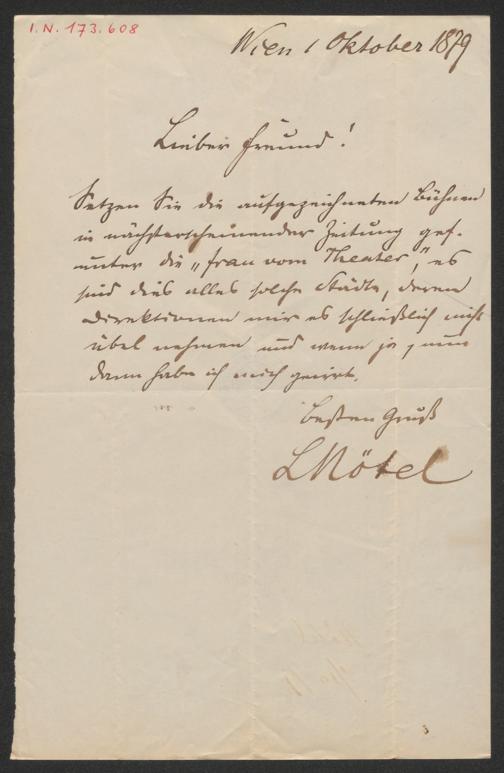 I.N. 173.608
Wien 1 Oktober 1879
Lieber Freund!
Setzen Sie die aufgezeichneten Bühnen
in nächsterscheinender Zeitung gef.
unter die „Frau vom Theater", es
sind dies alles solche Städte, deren
Direktionen mir es schließlich nicht
übel nehmen und wenn ja, nun
dann habe ich mich geirrt.
Besten Gruß